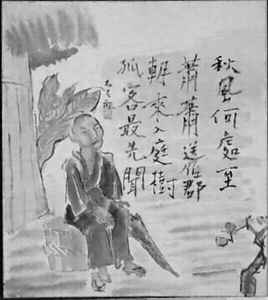 秋風何處至
蕭蕭送雁群
朝來入庭樹
孤客最先聞